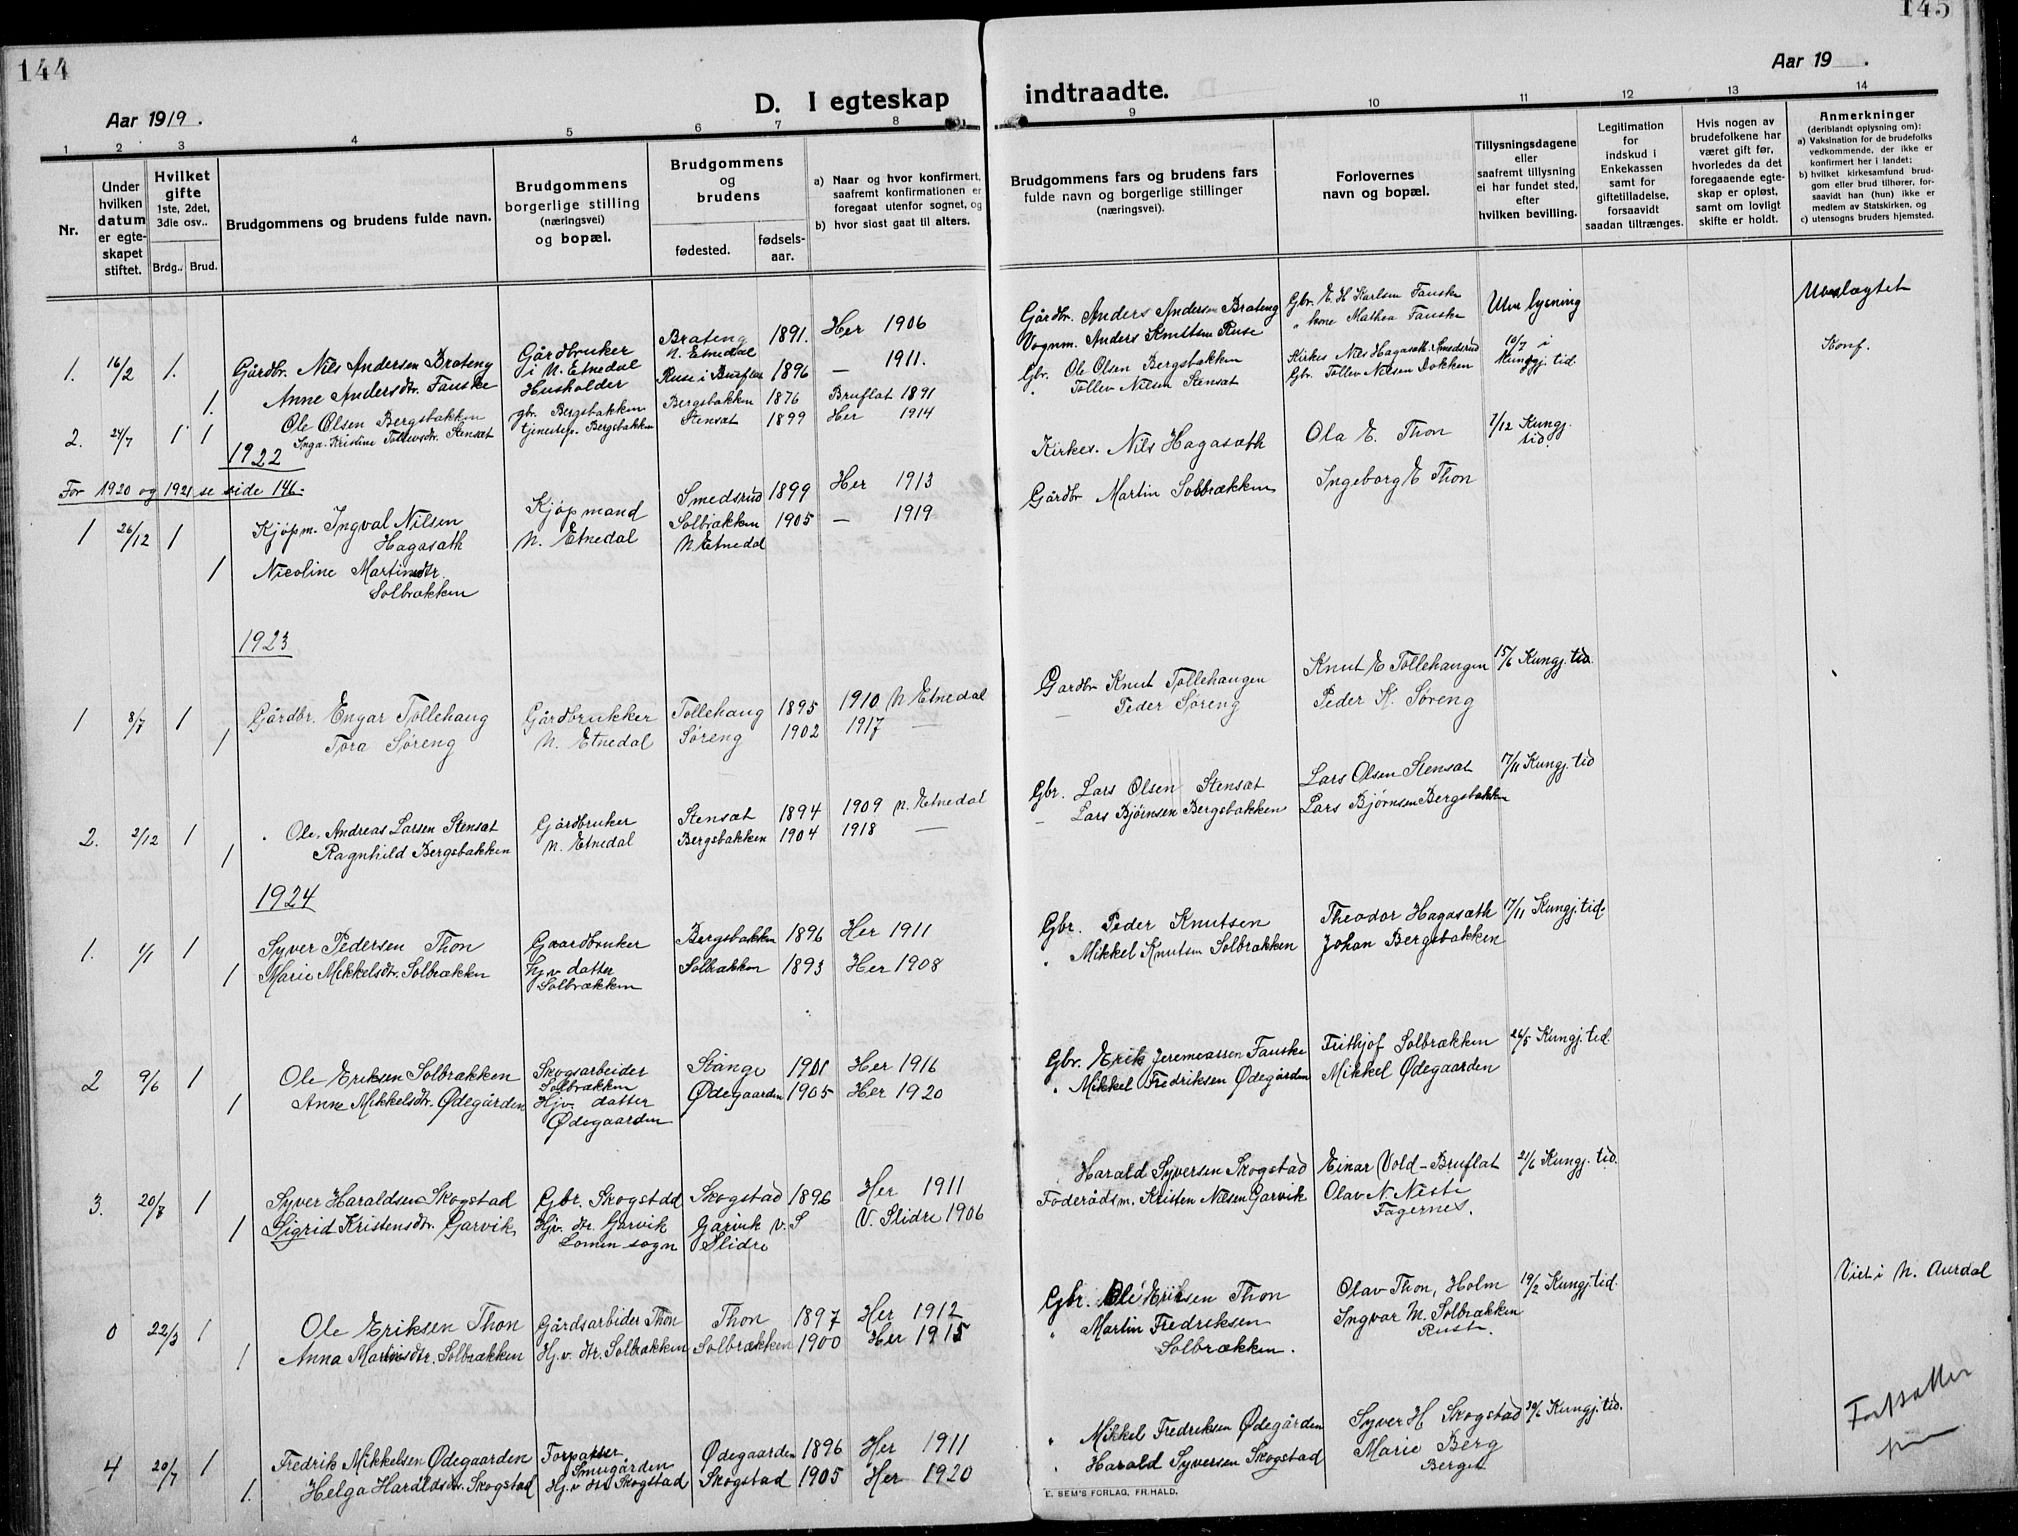 144
145
Aar 1919.
D. I egteskap indtraadte.
Aar 19 .
1 2 3 4 5 6 7 8 9 10 11 12 13 14
Nr.
Under hvilken datum er egte-skapet stiftet.
Hvilket gifte 1ste, 2det, 3die osv..
Brdg.. Brud.
Brudgommens og brudens fulde navn.
Brudgommens borgerlige stilling (næringsvei) og bopæl.
Brudgommens og brudens
fødested.
fødsels-aar.
a) Naar og hvor konfirmert, saafremt konfirmationen er foregaat utenfor sognet, og
b) hvor sidst gaat til alters.
Brudgommens fars og brudens fars fulde navn og borgerlige stillinger (næringsvei).
Forlovernes navn og bopæl.
Tillysningsdagene eller saafremt tillysning ei har fundet sted, efter hvilken bevilling.
Legitimation for indskud i Enkekassen samt for giftetilladelse, forsaavidt saadan tiltrænges.
Hvis nogen av brudefolkene har været gift før, hvorledes da det foregaaende egte-skap er opløst, samt om lovligt skifte er holdt.
Anmerkninger
(deriblandt oplysning om):
a) Vaksination for de brudefolks vedkommende, der ikke er konfirmert her i landet;
b) hvilket kirkesamfund brud-gom eller brud tilhører, for-saavidt han (hun) ikke er medlem av Statskirken, og
c) utensogns bruders hjemsted.
1. 16/2 1. Gårdbr. Nils Andersen Brateng Gårdbruker i N. Etnedal Brateng N. Etnedal 1891. Her 1906 Gårdbr. Anders Andersen Brateng Gbr. E. H. Karlsen Fauske Uten lysning
1. Anne Andersdtr. Fauske Husholder Ruse i Bruflat 1896 — 1911. Vognm. Anders Knutsen Ruse " kone Mathea Fauske
2. 24/7 1 1 Ole Olsen Bergsbakken gbr. Bergsbakken Bergsbakken 1876 Bruflat 1891 Gbr. Ole Olsen Bergsbakken Kirkes. Nils Hagasæth Smedsrud 10/7 i Kungj. tid Konf.
Inga Kristine Tollevsdtr. Stensæt tjenestep. Bergsbakken Stensæt 1899 Her 1914 " Tollev Nilsen Stensæt Gbr. Tollev Nilsen Dokken
1922
For 1920 og 1921 se side 146.
1 26/12 1 Kjøpm. Ingval Nilsen Hagasæth Kjøpmand N. Etnedal Smedsrud 1899 Her 1913 Kirkes. Nils Hagasæth Ola E. Thon 7/12 Kungj. tid
1 Nicoline Martinsdtr. Solbrækken Solbrækken N. Etnedal 1905 — 1919 Gårdbr Martin Solbrækken Ingeborg E Thon
1923
1 8/7 1 Gårdbr. Engar Tollehaug Gårdbrukker N. Etnedal Tollehaug 1895 1910 N. Etnedal Gardbr Knut Tollehaugen Knut E Tollehaugen 15/6 Kungj. tid.
1 Tora Søreng Søreng 1902 1917 — — Peder Søreng Peder K. Søreng
2. 2/12 1 Ole Andreas Larsen Stensæt Gårdbruker N. Etnedal Stensæt 1894 1909 N. Etnedal Gbr. Lars Olsen Stensæt Lars Olsen Stensæt 17/11 Kungj. tid
1 Ragnhild Bergsbakken Bergsbakken 1904 1918 — — Lars Bjørnsen Bergsbakken Lars Bjørnsen Bergsbakken
1924
1. 4/1 1 Syver Pedersen Thon Gaardbruker Bergsbakken 1896 Her 1911 Gbr. Peder Knutsen Theodor Hagasæth 17/11 Kungj. tid.
1 Marie Mikkelsdtr. Solbrækken hjv datter Solbrækken Solbrækken 1893 Her 1908 " Mikkel Knutsen Solbrækken Johan Bergsbakken
2 9/6 1 Ole Eriksen Solbrækken Skogsarbeider Solbrækken Stange 1901 Her 1916 Gbr. Erik Jeremeassen Fauske Frithjof Solbrækken 26/5 Kungj. tid.
1 Anne Mikkelsdtr. Ødegården Hjv. datter Ødegaarden Ødegaarden 1905 Her 1920 " Mikkel Fredriksen Ødegården Mikkel Ødegaarden
3. 20/7 1 Syver Haraldsen Skogstad Gbr. Skogstad Skogstad 1896 Her 1911 Harald Syversen Skogstad Einar Vold - Bruflat 21/6 Kungj. tid.
1 Sigrid Kristensdtr. Garvik Hjv. dtr. Garvik Lomen sogn Garvik v. Slidre V. Slidre 1906 Føderådsm. Kristen Nilsen Garvik Olav N. Neste Fagernes.
0 22/3 1 Ole Eriksen Thon Gårdsarbeider Thon Thon 1897 Her 1912 Gbr. Ole Eriksen Thon Olav Thon, Holm 19/2 Kungj. tid. Viet i N. Aurdal
1 Anna Martinsdtr. Solbrækken Hj.v. dtr. Solbrækken Solbrækken 1900 Her 1915 " Martin Fredriksen Solbrækken. Ingvar M. Solbrækken Rust.
4 20/7 1 Fredrik Mikkelsen Ødegaarden Forpakter Smugården Ødegaarden 1896 Her 1911 " Mikkel Fredriksen Ødegården Syver H Skogstad 29/6 Kungj. tid. Forpakter
1. Helga Haraldsdtr. Skogstad Hj.v dtr Skogstad Skogstad 1905 Her 1920 " Harald Syversen Skogstad Marie Berg
E. SEM'S FORLAG, FR.HALD.